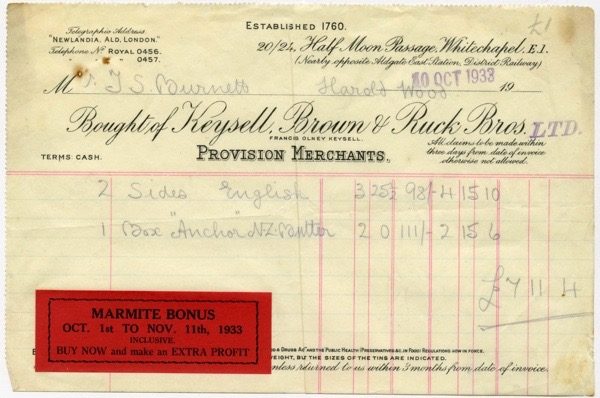 ESTABLISHED 1760.
£1
Telegraphic Address
"NEWLANDIA, ALD, LONDON."
Telephone No ROYAL 0456.
" " 0457.
20/24, Half Moon Passage, Whitechapel, E.1.
(Nearly opposite Aldgate East Station, District Railway)
10 OCT 1933
M r. T S. Burnett Harold Wood 19
Bought of Keysell, Brown & Ruck Bros. LTD.
FRANCIS OLNEY KEYSELL.
TERMS: CASH.
PROVISION MERCHANTS.
All claims to be made within
three days from date of invoice
otherwise not allowed.
2 Sides English 3 25½ 98/- 4 15 10
1 Box "Anchor" N.Z. Butter 2 0 111/- 2 15 6
£7 11 4
MARMITE BONUS
OCT. 1st TO NOV. 11th, 1933
INCLUSIVE.
BUY NOW and make an EXTRA PROFIT
& DRUGS ACT AND THE PUBLIC HEALTH (PRESERVATIVES &C. IN FOOD) REGULATIONS NOW IN FORCE.
WEIGHT, BUT THE SIZES OF THE TINS ARE INDICATED.
unless returned to us within 3 months from date of invoice.